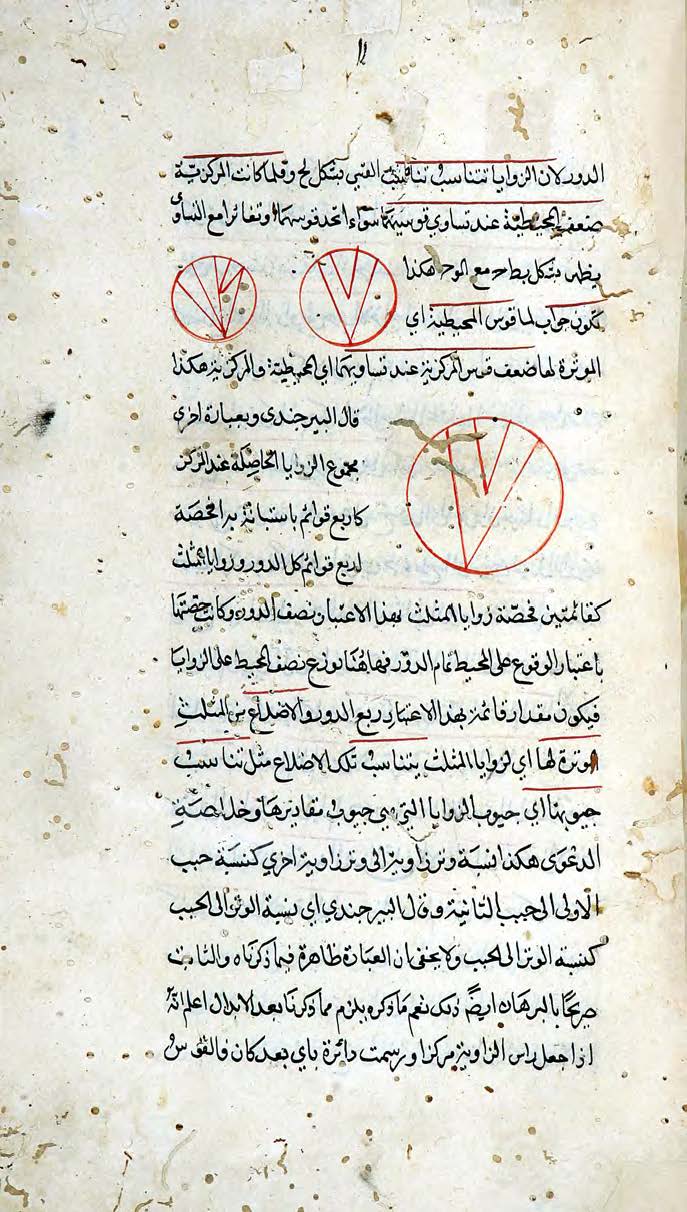 ١٢
الدور لان الزوايا تتناسب تناسب القسي بشكل لح و قلما كانت المركزية
ضعف المحيطية عند تساوي قوسيهما سواء اتحد قوسهما او تغائرا مع التساوي
يظهر بشكل يط من مع الوجه هكذا
تكون جواب لما قوس المحيطية اي
الموترة لها ضعف قوس المركزية عند تساويهما اي المحيطية والمركزية هكذا
قال البيرجندي وبعبارة اخرى
مجموع الزوايا الحاصلة عند المركز
كاربع قوائم باستبانة يه ا فحصة
اربع قوائم كل الدور وزوايا المثلث
كقائمتين فحصة زوايا المثلث بهذا الاعتبار نصف الدور وكانت حصتها
باعتبار الوقوع على المحيط تمام الدور فههنا نوزع نصف المحيط على الزوايا
فيكون مقدار قائمة بهذا الاعتبار ربع الدور والاضلاع من المثلث
الموترة لها اي لزوايا المثلث يتناسب تلك الاضلاع مثل تناسب
جيوبها اي جيوب الزوايا التي هي جيوب مقاديرها وخلاصة
الدعوى هكذا نسبة وتر زاوية الى وتر زاوية اخرى كنسبة جيب
الاولى الى جيب الثانية وقال البيرجندي اي نسبة الوتر الى الجيب
كنسبة الوتر الى الجيب ولا يخفى ان العبارة ظاهرة فيما ذكرناه والثابت
صريحا بالبرهان ايضا ذلك نعم ما ذكره يلزم مما ذكرنا بعد الابدال اعلم انه
اذا جعل راس الزاوية مركزا و رسمت دائرة باي بعد كان فالقوس